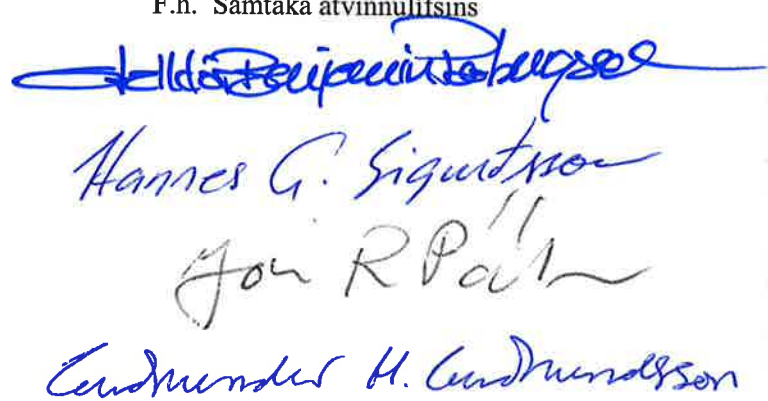 F.h. Samtaka atvinnulífsins
Halldór Benjamín Þorbergsson
Hannes G. Sigurðsson
Jón R Páls
Guðmundur H. Guðmundsson